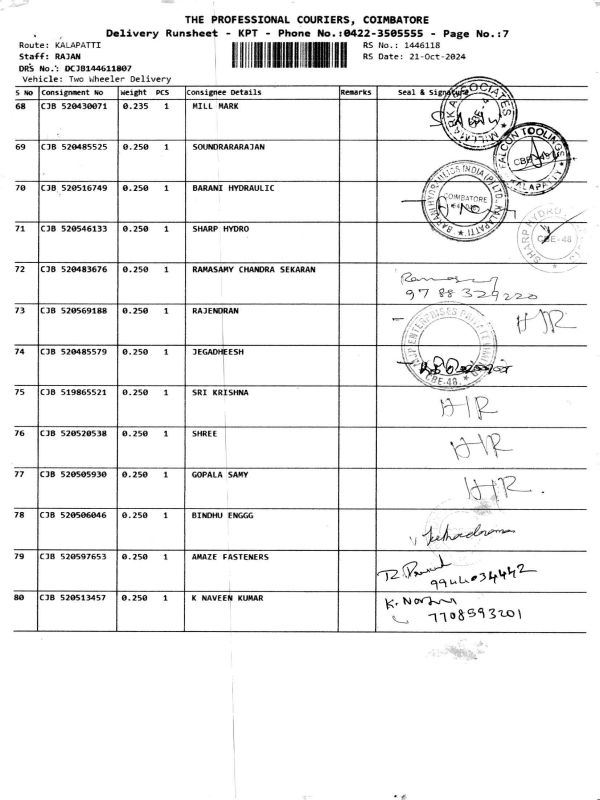 THE PROFESSIONAL COURIERS, COIMBATORE
Delivery Runsheet - KPT - Phone No.:0422-3505555 - Page No.:7
Route: KALAPATTI RS No.: 1446118
Staff: RAJAN RS Date: 21-Oct-2024
DRS No.: DCJB144611807
Vehicle: Two Wheeler Delivery
S No Consignment No Weight PCS Consignee Details Remarks Seal & Signature
68 CJB 520430071 0.235 1 MILL MARK MILLMARK ASSOCIATES
69 CJB 520485525 0.250 1 SOUNDRARARAJAN FALCON TOOLINGS CBE-48 KALAPATTI
70 CJB 520516749 0.250 1 BARANI HYDRAULIC BARANI HYDRAULICS INDIA (P) LTD., KALAPATTI COIMBATORE
71 CJB 520546133 0.250 1 SHARP HYDRO SHARP HYDRO CBE-48
72 CJB 520483676 0.250 1 RAMASAMY CHANDRA SEKARAN
9788329220
73 CJB 520569188 0.250 1 RAJENDRAN H/R
74 CJB 520485579 0.250 1 JEGADHEESH ENTERPRISES PRIVATE LIMITED CBE-48.
75 CJB 519865521 0.250 1 SRI KRISHNA H/R
76 CJB 520520538 0.250 1 SHREE H/R
77 CJB 520505930 0.250 1 GOPALA SAMY H/R.
78 CJB 520506046 0.250 1 BINDHU ENGGG
79 CJB 520597653 0.250 1 AMAZE FASTENERS
9944034442
80 CJB 520513457 0.250 1 K NAVEEN KUMAR
7708593201